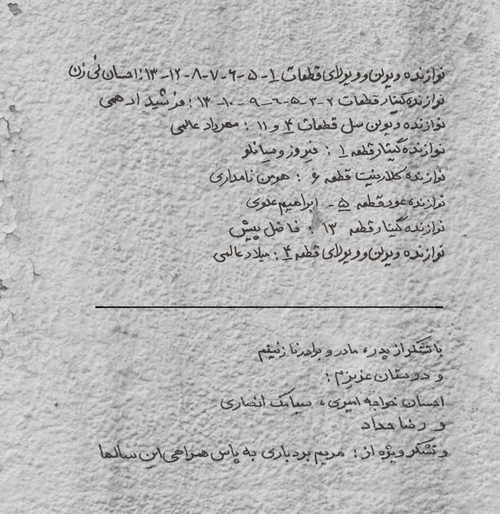 نوازنده ویولن و ویولای قطعات ۱-۵-۶-۷-۸-۱۲-۱۳: احسان نی زن
نوازنده گیتار قطعات ۲-۳-۵-۶-۹-۱۰-۱۳: فرشید ادهمی
نوازنده ویولن سل قطعات ۴ و ۱۱: مهرداد عالمی
نوازنده گیتار قطعه ۱: فیروز ویسانلو
نوازنده کلارینت قطعه ۶: هومن نامداری
نوازنده عود قطعه ۵- ابراهیم علوی
نوازنده گیتار قطعه ۱۳: فاضل پیش
نوازنده ویولن و ویولای قطعه ۴: میلاد عالمی
با تشکر از پدر، مادر و برادر نازنینم
و دوستان عزیزم:
احسان خواجه امیری، سیامک انصاری
و رضا حداد
و تشکر ویژه از: مریم بردباری به پاس همراهی این سالها